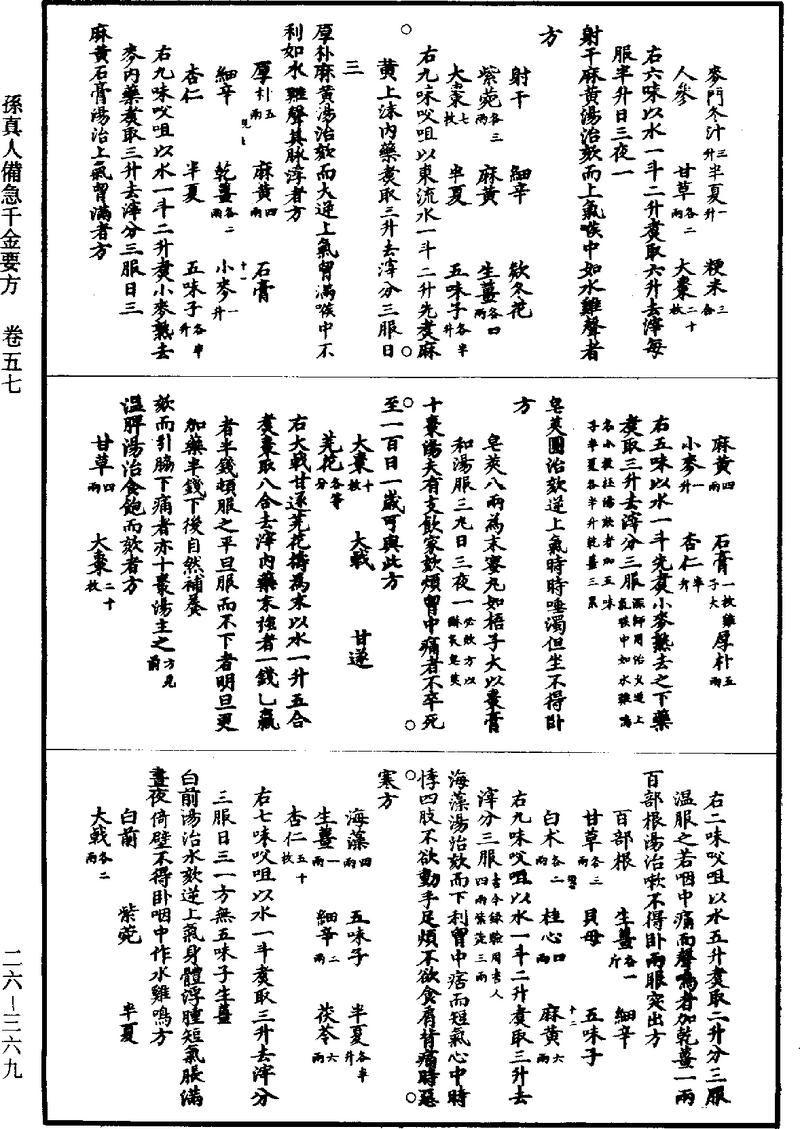 孫真人備急千金要方　卷五七
二六－三六九
麥門冬汁三升　半夏一升　粳米三合
人參　甘草各二兩　大棗二十枚
右六味以水一斗二升煑取六升去滓每
服半升日三夜一
射干麻黄湯治欬而上氣喉中如水雞聲者
方
射干　細辛　欵冬花
紫菀各三兩　麻黄　生薑各四兩
大棗七枚　半夏　五味子各半升
右九味㕮咀以東流水一斗二升先煑麻
黄上沫内藥煑取三升去滓分三服日
三
厚朴麻黄湯治欬而大逆上氣胷滿喉中不
利如水雞聲其脉浮者方
厚朴五兩　麻黄四兩　石膏
細辛　乾薑各二兩　小麥一升
杏仁　半夏　五味子各半升
右九味㕮咀以水一斗二升煑小麥熟去
麥内藥煑取三升去滓分三服日三
麻黄石膏湯治上氣胷滿者方
麻黄四兩　石膏一枚雞子大　厚朴五兩
小麥一升　杏仁半升
右五味以水一斗先煑小麥熟去之下藥
煑取三升去滓分三服深師用治欬大逆上氣喉中如水雞鳴
皂莢圓治欬逆上氣時時唾濁但坐不得卧
方
皂莢八兩為末蜜丸如梧子大以棗膏
和湯服三丸日三夜一
十棗湯夫有支飲家欬煩胷中痛者不卒死
至一百日一歲可與此方
大棗十枚　大戟　甘遂
芫花各等分
右大戟甘遂芫花擣為末以水一升五合
煑棗取八合去滓内藥末強者一錢匕羸
者半錢頓服之平旦服而不下者明旦更
加藥半錢下後自然補養
欬而引脇下痛者亦十棗湯主之方見前
温脾湯治食飽而欬者方
甘草四兩　大棗二十枚
右二味㕮咀以水五升煑取二升分三服
温服之若咽中痛而聲鳴者加乾薑一兩
百部根湯治嗽不得卧兩服突出方
百部根　生薑各一斤　細辛
甘草各三兩　貝母　五味子
白术各二兩　桂心四兩　麻黄六兩
右九味㕮咀以水一斗二升煑取三升去
滓分三服古今録驗用杏人四兩紫菀三兩
海藻湯治欬而下利胷中痞而短氣心中時
悸四肢不欲動手足煩不欲食肩背痛時惡
寒方
海藻四兩　五味子　半夏各半升
生薑一兩　細辛二兩　茯苓六兩
杏仁五十枚
右七味㕮咀以水一斗煑取三升去滓分
三服日三一方無五味子生薑
白前湯治水欬逆上氣身體浮腫短氣脹滿
晝夜倚壁不得卧咽中作水雞鳴方
白前　紫菀　半夏
大戟各二兩